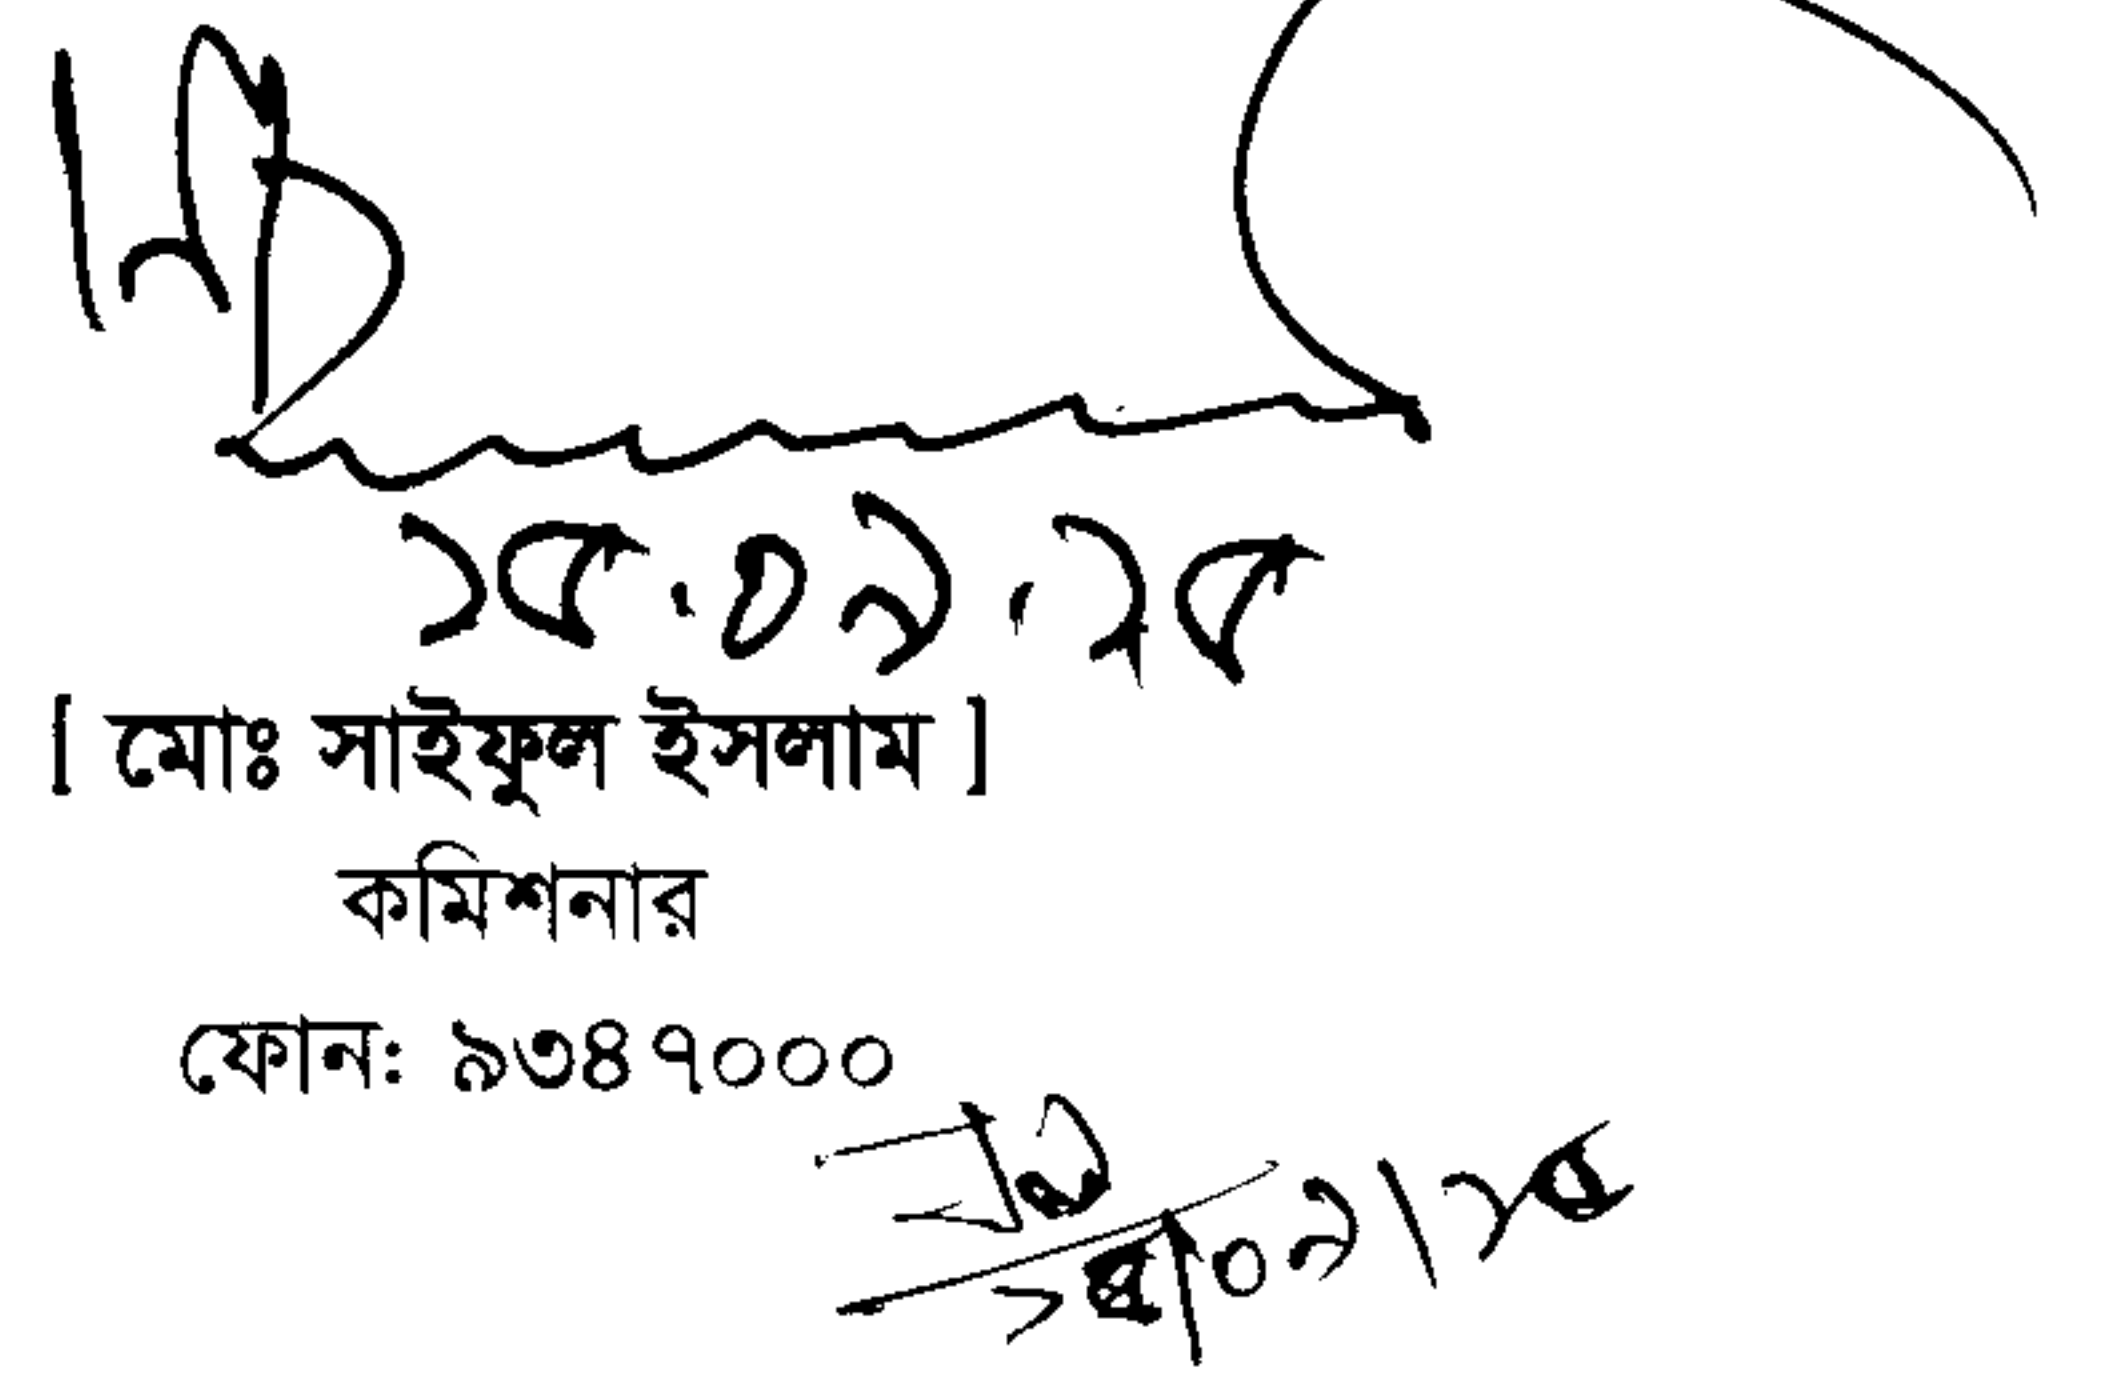 ১৫.০৯.২৫
[ মোঃ সাইফুল ইসলাম ]
কমিশনার
ফোন: ৯৩৪৭০০০
১৫/০৯/২৫